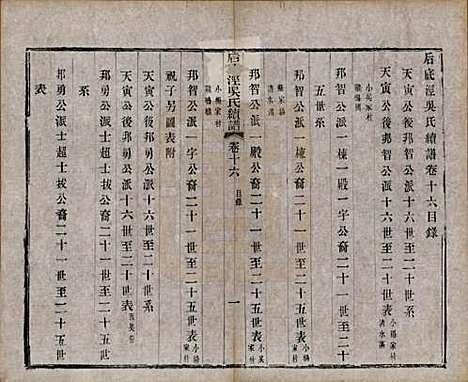 后底涇吳氏續譜卷十六目錄
天寅公後邦智公派十六世至二十一世表
天寅公後邦智公派十六世至二十一世系
邦智公派一棟一殿一字公裔二十一世至二十
五世系
邦智公派一棟公裔二十一世至二十五世表
邦智公派一殿公裔二十一世至二十五世表
后底涇吳氏續譜
卷十六
目錄
一
邦智公派一字公裔二十一世至二十五世表
祝子另圖表附
天寅公後邦勇公派十六世至二十一世系
天寅公後邦勇公派十六世至二十一世表
邦勇公派士超士拔公裔二十一世至二十五世
系
邦勇公派士超士拔公裔二十一世至二十五世
表